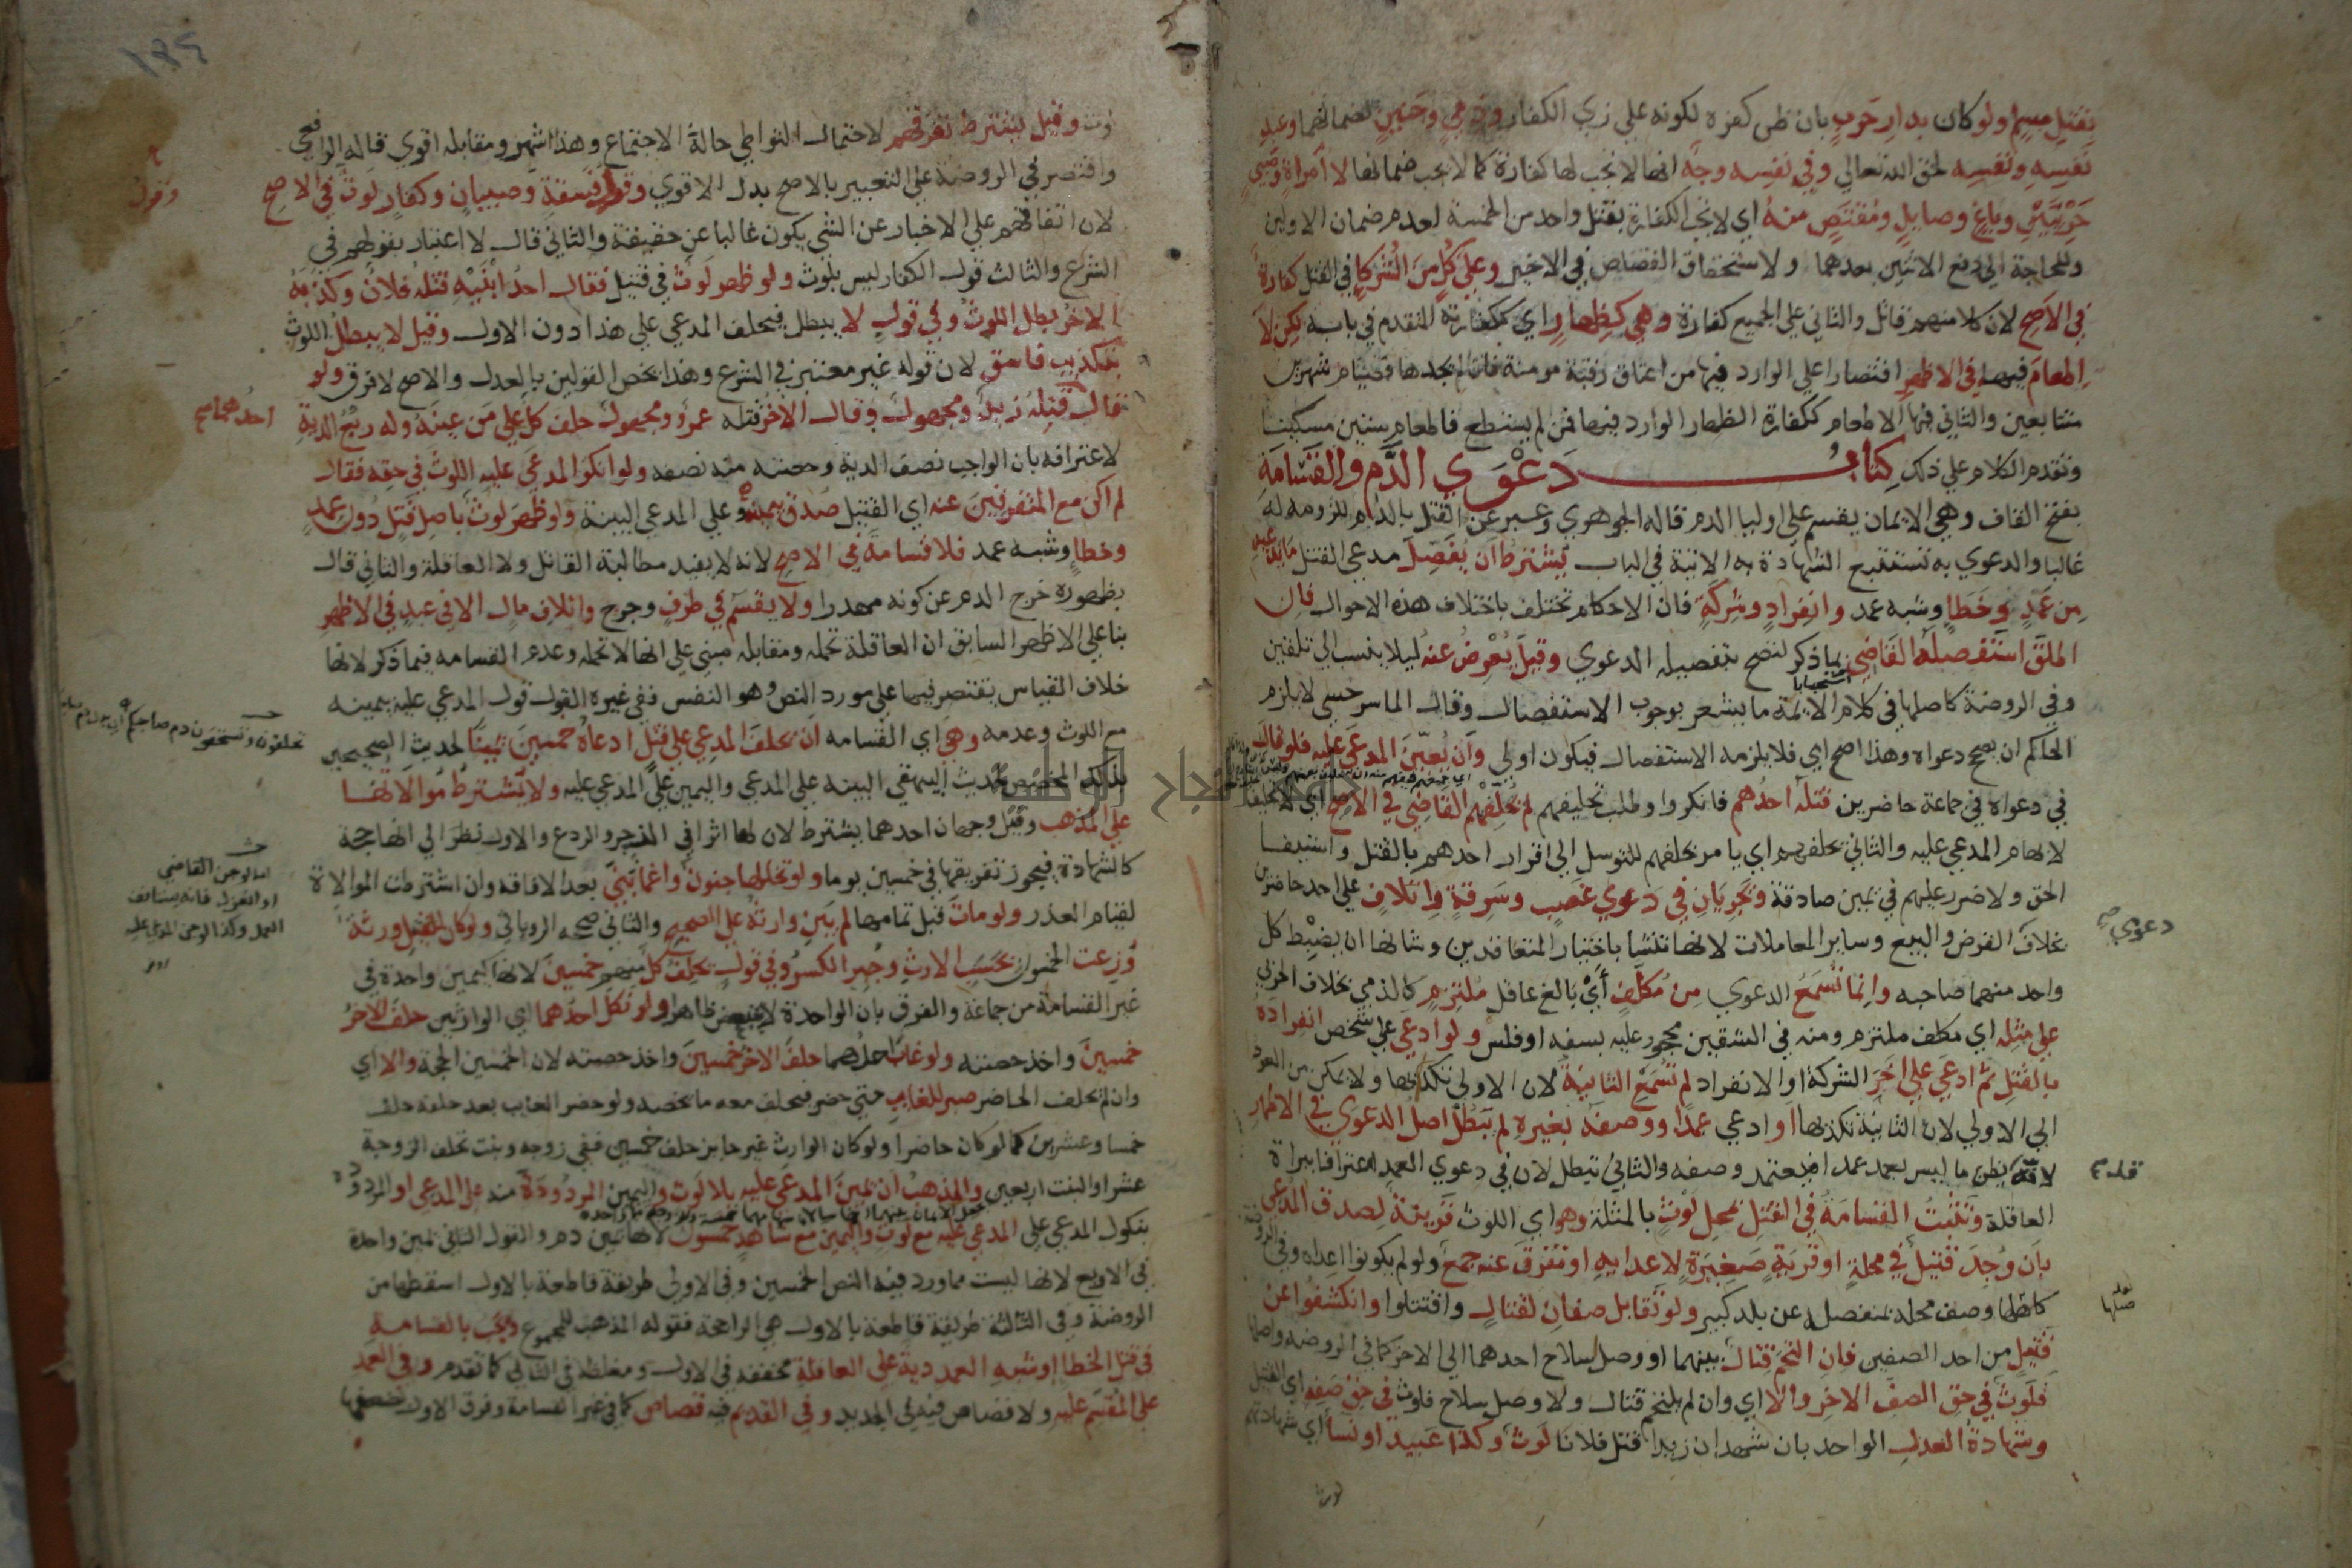 بقتل مسلم ولو كان بدار حرب بان ظن كفره لكونه على زي الكفار وذمي وجنين لضمانهما وعبد
نفسه ونفسه لحق الله تعالى وفي نفسه وجه انها لا تجب لها كفارة كما لا يجب ضمانها لا امراة وصبي
حربيين وباغ وصايل ومقتص منه اي لا تجب الكفارة بقتل واحد من الخمسة لعدم ضمان الاولين
وللحاجة الى دفع الاثنين بعدهما ولاستحقاق القصاص في الاخير وعلى كل من الشركا في القتل كفارة
في الاصح لان كلا منهم قاتل والثاني على الجميع كفارة وهي كظهار اي ككفارته المتقدم في بابه لكن لا
اطعام فيها في الاظهر اقتصارا على الوارد فيها من اعتاق رقبة مومنة فان لم يجدها فصيام شهرين
متتابعين والثاني فيها الاطعام ككفارة الظهار الوارد فيها فمن لم يستطع فاطعام ستين مسكينا
وتقدم الكلام على ذلك كتاب دعوى الدم والقسامة
بفتح القاف وهي الايمان يقسم على اوليا الدم قاله الجوهري وعبر عن القتل بالدم للزومه له
غالبا والدعوي به تستتبع الشهادة به الاتية في الباب يشترط ان يفصل مدعي القتل ما يدعيه
من عمد وخطا وشبه عمد وانفراد وشركة فان الاحكام تختلف باختلاف هذه الاحوال فان
اطلق استفصله القاضي استحبابا بما ذكر لتصح بتفصيله الدعوي وقيل يعرض عنه ليلا ينسب الى تلقين
وفي الروضة كاصلها في كلام الايمة ما يشعر بوجوب الاستفصال وقال الماسرجسي لا يلزم
الحاكم ان يصح دعواه وهذا اصح اي فلا يلزمه الاستفصال فيكون اولي وان يعين المدعي عليه فلو قال
في دعواه في جماعة حاضرين قتله احدهم فانكروا وطلب تحليفهم لم يحلفهم القاضي في الاصح اي
لابهام المدعي عليه والثاني يحلفهم اي يامر بحلفهم للتوسل الى اقرار احدهم بالقتل واستيفا
الحق ولا ضرر عليهم في يمين صادقة ويجريان في دعوي غصب وسرقة واتلاف على احد حاضرين
بخلاف القرض والبيع وساير المعاملات لانها تنشا باختيار المتعاقدين وشانها ان يضبط كل
واحد منهما صاحبه وانما تسمع الدعوي من مكلف اي بالغ عاقل ملتزم كالذمي بخلاف الحربي
علي مثله اي مكلف ملتزم ومنه في الشقين محجور عليه بسفه او فلس ولو ادعي علي شخص انفراده
بالقتل ثم ادعي علي اخر الشركة او الانفراد لم تسمع الثانية لان الاولي تكذبها ولا يمكن من العود
الي الاولي لان الثانية تكذبها او ادعي عمدا ووصفه بغيره لم يبطل اصل الدعوي في الاظهر
لانه يظن ما ليس بعمد عمدا فيعتمد وصفه والثاني تبطل لان في دعوي العمد اعترافا ببراة
العاقلة وتثبت القسامة في القتل بمحل لوث بالمثلثة وهو اي اللوث قرينة لصدق المدعي
بان وجد قتيل في محلة او قرية صغيرة لاعدايه او تفرق عنه جمع ولو لم يكونوا اعداه وفي الروضة
كاصلها وصف محلة بمنفصلة عن بلد كبير ولو تقابل صفان لقتال واقتتلوا وانكشفوا عن
قتيل من احد الصفين فان التحم قتال بينهما او وصل سلاح احدهما الي الاخر كما في الروضة واصلها
فلوث في حق الصف الاخر والا اي وان لم يلتحم قتال ولا وصل سلاح فلوث في حق صفه اي القتيل
وشهادة العدل الواحد بان شهد ان زيدا قتل فلانا لوث وكذا عبيد او نسا اي شهادتهم
دعوي
لوث وقيل يشترط تفرقهم لاحتمال التواطي حالة الاجتماع وهذا اشهر ومقابله اقوي قاله الرافعي
واقتصر في الروضة علي التعبير بالاصح بدل الاقوي وقول فسقة وصبيان وكفار لوث في الاصح
لان اتفاقهم علي الاخبار عن الشي يكون غالبا عن حقيقة والثاني قال لا اعتبار بقولهم في
الشرع والثالث قول الكفار ليس بلوث ولو ظهر لوث في قتيل فقال احد ابنيه قتله فلان وكذبه
الاخر بطل اللوث وفي قول لا يبطل فيحلف المدعي علي هذا دون الاول وقيل لا يبطل اللوث
بتكذيب فاسق لان قوله غير معتبر في الشرع وهذا يخص القولين بالعدل والاصح لا فرق ولو
قال قتله زيد ومجهول وقال الاخر قتله عمرو ومجهول حلف كل علي من عينه وله ربع الدية
لاعترافه بان الواجب نصف الدية وحصته منه نصفه ولو انكر المدعي عليه اللوث في حقه فقال
لم اكن مع المتفرقين عنه اي القتيل صدق بيمينه وعلي المدعي البينة ولو ظهر لوث باصل قتل دون عمد
وخطا وشبه عمد فلا قسامة في الاصح لانه لا يفيد مطالبة القاتل ولا العاقلة والثاني قال
بظهوره خرج الدم عن كونه مهدرا ولا يقسم في طرف وجرح واتلاف مال الا في عبد في الاظهر
بنا علي الاظهر السابق ان العاقلة تحمله ومقابله مبني علي انها لا تحمله وعدم القسامة فيما ذكر لانها
خلاف القياس يقتصر فيها علي مورد النص وهو النفس ففي غيره القول قول المدعي عليه بيمينه
مع اللوث وعدمه وهي اي القسامة ان يحلف المدعي علي قتل ادعاه خمسين يمينا لحديث الصحيحين
بذلك المخصص لحديث البيهقي البينة علي المدعي واليمين علي المدعي عليه ولا يشترط موالاتها
علي المذهب وقيل وجهان احدهما يشترط لان لها اثرا في الزجر والردع والاول نظر الي انها حجة
كالشهادة فيجوز تفريقها في خمسين يوما ولو تخللها جنون واغما بني بعد الافاقة وان اشترطت الموالاة
لقيام العذر ولو مات قبل تمامها لم يبن وارثه علي الصحيح والثاني صححه الروياني ولو كان للقتيل ورثة
وزعت الخمسون بحسب الارث وجبر الكسر وفي قول يحلف كل منهم خمسين لانها كيمين واحدة في
غير القسامة من جماعة والفرق بان الواحدة لا تتبعض ظاهر ولو نكل احدهما اي الوارثين حلف الاخر
خمسين واخذ حصته ولو غاب احدهما حلف الاخر خمسين واخذ حصته لان الخمسين الحجة والا اي
وان لم يحلف الحاضر صبر للغايب حتي حضر فيحلف معه ما يخصه ولو حضر الغايب بعد حلفه حلف
خمسا وعشرين كما لو كان حاضرا ولو كان الوارث غير حايز حلف خمسين ففي زوجة وبنت تحلف الزوجة
عشرا والبنت اربعين والمذهب ان يمين المدعي عليه بلا لوث واليمين المردودة منه علي المدعي او المردودة
بنكول المدعي علي المدعي عليه مع لوث واليمين مع شاهد خمسون لانها يمين دم والقول الثاني يمين واحدة
في الاربع لانها ليست مما ورد فيه النص الخمسين وفي الاولي طريقة قاطعة بالاول اسقطها من
الروضة وفي الثالثة طريقة قاطعة بالاول هي الراجحة فقوله المذهب للمجموع ويجب بالقسامة
في قتل الخطا او شبه العمد دية علي العاقلة مخففة في الاول ومغلظة في الثاني كما تقدم وفي العمد
علي المقسم عليه ولا قصاص فيه في الجديد وفي القديم فيه قصاص كما في غير القسامة وفرق الاول
تحلفون وتستحقون دم صاحبكم